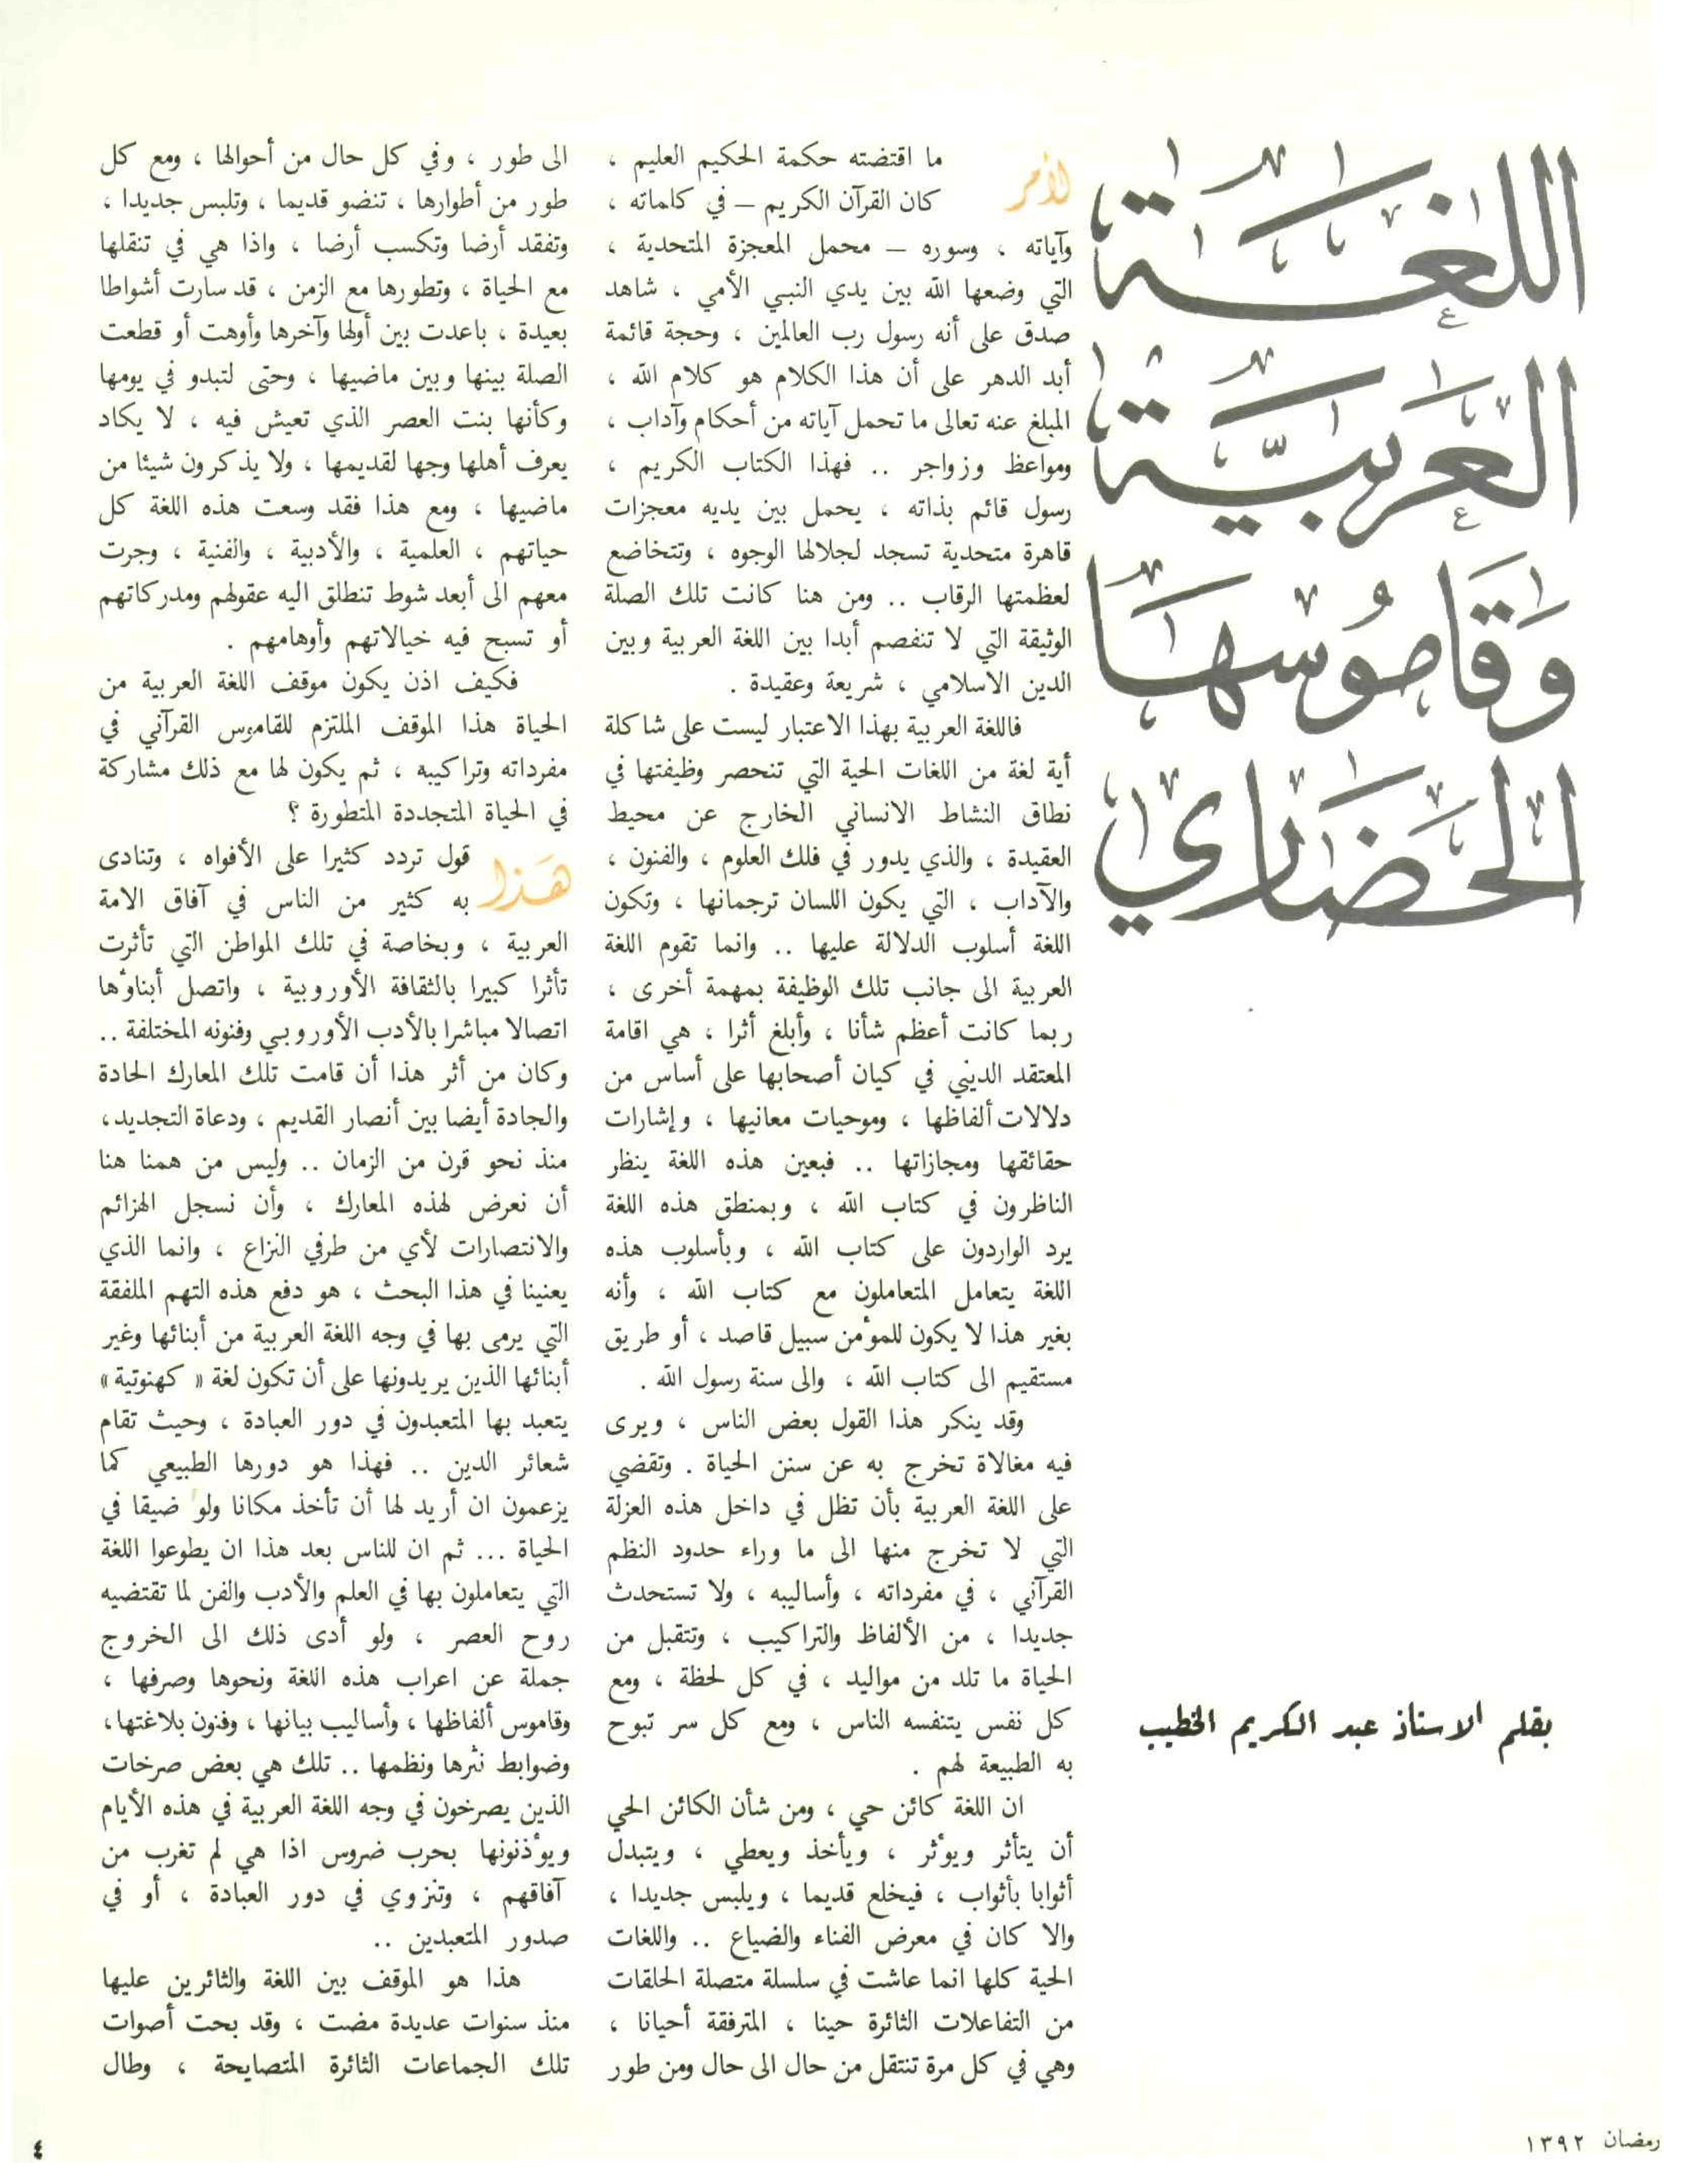 اللغة
العربية
وقاموسها
الحضاري
بقلم الاستاذ عبد الكريم الخطيب
لأمر ما اقتضته حكمة الحكيم العليم ،
كان القرآن الكريم – في كلماته ،
وآياته ، وسوره – محمل المعجزة المتحدية ،
التي وضعها الله بين يدي النبي الأمي ، شاهد
صدق على أنه رسول رب العالمين ، وحجة قائمة
أبد الدهر على أن هذا الكلام هو كلام الله ،
المبلغ عنه تعالى ما تحمل آياته من أحكام وآداب ،
ومواعظ وزواجر .. فهذا الكتاب الكريم ،
رسول قائم بذاته ، يحمل بين يديه معجزات
قاهرة متحدية تسجد لجلالها الوجوه ، وتتخاضع
لعظمتها الرقاب .. ومن هنا كانت تلك الصلة
الوثيقة التي لا تنفصم أبدا بين اللغة العربية وبين
الدين الاسلامي ، شريعة وعقيدة .
فاللغة العربية بهذا الاعتبار ليست على شاكلة
أية لغة من اللغات الحية التي تنحصر وظيفتها في
نطاق النشاط الانساني الخارج عن محيط
العقيدة ، والذي يدور في فلك العلوم ، والفنون ،
والآداب ، التي يكون اللسان ترجمانها ، وتكون
اللغة أسلوب الدلالة عليها .. وانما تقوم اللغة
العربية الى جانب تلك الوظيفة بمهمة أخرى ،
ربما كانت أعظم شأنا ، وأبلغ أثرا ، هي اقامة
المعتقد الديني في كيان أصحابها على أساس من
دلالات ألفاظها ، وموحيات معانيها ، وإشارات
حقائقها ومجازاتها .. فبعين هذه اللغة ينظر
الناظرون في كتاب الله ، وبمنطق هذه اللغة
يرد الواردون على كتاب الله ، وبأسلوب هذه
اللغة يتعامل المتعاملون مع كتاب الله ، وأنه
بغير هذا لا يكون للمؤمن سبيل قاصد ، أو طريق
مستقيم الى كتاب الله ، والى سنة رسول الله .
وقد ينكر هذا القول بعض الناس ، ويرى
فيه مغالاة تخرج به عن سنن الحياة . وتقضي
على اللغة العربية بأن تظل في داخل هذه العزلة
التي لا تخرج منها الى ما وراء حدود النظم
القرآني ، في مفرداته ، وأساليبه ، ولا تستحدث
جديدا ، من الألفاظ والتراكيب ، وتتقبل من
الحياة ما تلد من مواليد ، في كل لحظة ، ومع
كل نفس يتنفسه الناس ، ومع كل سر تبوح
به الطبيعة لهم .
ان اللغة كائن حي ، ومن شأن الكائن الحي
أن يتأثر ويؤثر ، ويأخذ ويعطي ، ويتبدل
أثوابا بأثواب ، فيخلع قديما ، ويلبس جديدا ،
والا كان في معرض الفناء والضياع .. واللغات
الحية كلها انما عاشت في سلسلة متصلة الحلقات
من التفاعلات الثائرة حينا ، المترفقة أحيانا ،
وهي في كل مرة تنتقل من حال الى حال ومن طور
الى طور ، وفي كل حال من أحوالها ، ومع كل
طور من أطوارها ، تنضو قديما ، وتلبس جديدا ،
وتفقد أرضا وتكسب أرضا ، واذا هي في تنقلها
مع الحياة ، وتطورها مع الزمن ، قد سارت أشواطا
بعيدة ، باعدت بين أولها وآخرها وأوهت أو قطعت
الصلة بينها وبين ماضيها ، وحتى لتبدو في يومها
وكأنها بنت العصر الذي تعيش فيه ، لا يكاد
يعرف أهلها وجها لقديمها ، ولا يذكرون شيئا من
ماضيها ، ومع هذا فقد وسعت هذه اللغة كل
حياتهم ، العلمية ، والأدبية ، والفنية ، وجرت
معهم الى أبعد شوط تنطلق اليه عقولهم ومدركاتهم
أو تسبح فيه خيالاتهم وأوهامهم .
فكيف اذن يكون موقف اللغة العربية من
الحياة هذا الموقف الملتزم للقاموس القرآني في
مفرداته وتراكيبه ، ثم يكون لها مع ذلك مشاركة
في الحياة المتجددة المتطورة ؟
هذا قول تردد كثيرا على الأفواه ، وتنادى
به كثير من الناس في آفاق الامة
العربية ، وبخاصة في تلك المواطن التي تأثرت
تأثرا كبيرا بالثقافة الأوروبية ، واتصل أبناؤها
اتصالا مباشرا بالأدب الأوروبي وفنونه المختلفة ..
وكان من أثر هذا أن قامت تلك المعارك الحادة
والجادة أيضا بين أنصار القديم ، ودعاة التجديد ،
منذ نحو قرن من الزمان .. وليس من همنا هنا
أن نعرض لهذه المعارك ، وأن نسجل الهزائم
والانتصارات لأي من طرفي النزاع ، وانما الذي
يعنينا في هذا البحث ، هو دفع هذه التهم الملفقة
التي يرمى بها في وجه اللغة العربية من أبنائها وغير
أبنائها الذين يريدونها على أن تكون لغة « كهنوتية »
يتعبد بها المتعبدون في دور العبادة ، وحيث تقام
شعائر الدين .. فهذا هو دورها الطبيعي كما
يزعمون ان أريد لها أن تأخذ مكانا ولو ضيقا في
الحياة ... ثم ان للناس بعد هذا ان يطوعوا اللغة
التي يتعاملون بها في العلم والأدب والفن لما تقتضيه
روح العصر ، ولو أدى ذلك الى الخروج
جملة عن اعراب هذه اللغة ونحوها وصرفها ،
وقاموس ألفاظها ، وأساليب بيانها ، وفنون بلاغتها ،
وضوابط نثرها ونظمها .. تلك هي بعض صرخات
الذين يصرخون في وجه اللغة العربية في هذه الأيام
ويؤذنونها بحرب ضروس اذا هي لم تغرب من
آفاقهم ، وتنزوي في دور العبادة ، أو في
صدور المتعبدين ..
هذا هو الموقف بين اللغة والثائرين عليها
منذ سنوات عديدة مضت ، وقد بحت أصوات
تلك الجماعات الثائرة المتصايحة ، وطال
رمضان ١٣٩٢
٤